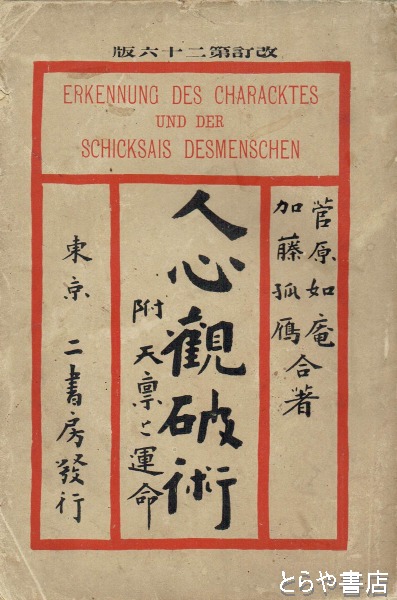 改訂第二十六版
ERKENNUNG DES CHARACKTES
UND DER
SCHICKSAIS DESMENSCHEN
菅原如庵
加藤孤鴈
合著
人心觀破術
附 天稟と運命
東京 二書房發行
とらや書店